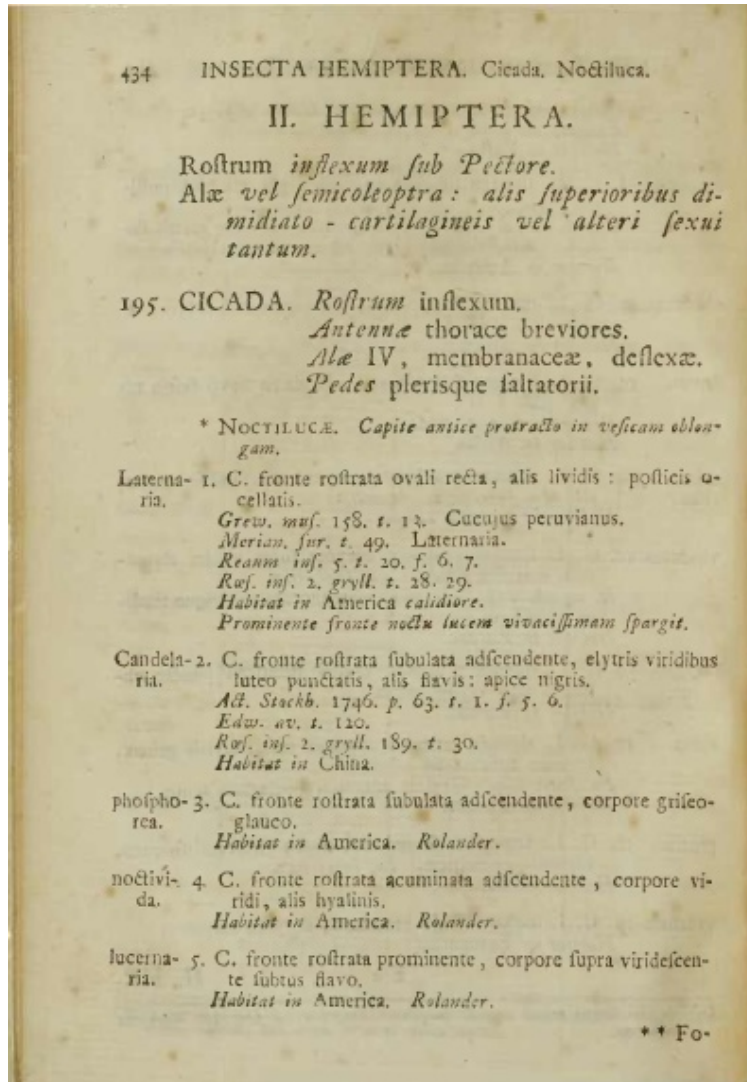 434 INSECTA HEMIPTERA. Cicada. Noctiluca.
II. HEMIPTERA.
Roſtrum inflexum ſub Pectore.
Alæ vel ſemicoleoptra: alis ſuperioribus di-
midiato-cartilagineis vel alteri ſexui
tantum.
195. CICADA. Roſtrum inflexum.
Antennæ thorace breviores.
Alæ IV, membranaceæ, deflexæ.
Pedes plerisque ſaltatorii.
* NOCTILUCÆ. Capite antice protracto in veſicam oblon-
gam.
Laterna- 1. C. fronte roſtrata ovali recta, alis lividis: poſticis o-
ria. cellatis.
Grew. muſ. 158. t. 13. Cucujus peruvianus.
Merian. ſur. t. 49. Laternaria.
Reaum inſ. 5. t. 20. f. 6. 7.
Rœſ. inſ. 2. gryll. t. 28. 29.
Habitat in America calidiore.
Prominente fronte noctu lucem vivaciſſimam ſpargit.
Candela- 2. C. fronte roſtrata ſubulata adſcendente, elytris viridibus
ria. luteo punctatis, alis flavis: apice nigris.
Act. Stockh. 1746. p. 63. t. 1. f. 5. 6.
Edw. av. t. 120.
Rœſ. inſ. 2. gryll. 189. t. 30.
Habitat in China.
phoſpho- 3. C. fronte roſtrata ſubulata adſcendente, corpore griſeo-
rea. glauco.
Habitat in America. Rolander.
noctivi- 4. C. fronte roſtrata acuminata adſcendente, corpore vi-
da. ridi, alis hyalinis.
Habitat in America. Rolander.
lucerna- 5. C. fronte roſtrata prominente, corpore ſupra virideſcen-
ria. te ſubtus flavo.
Habitat in America. Rolander.
** Fo-